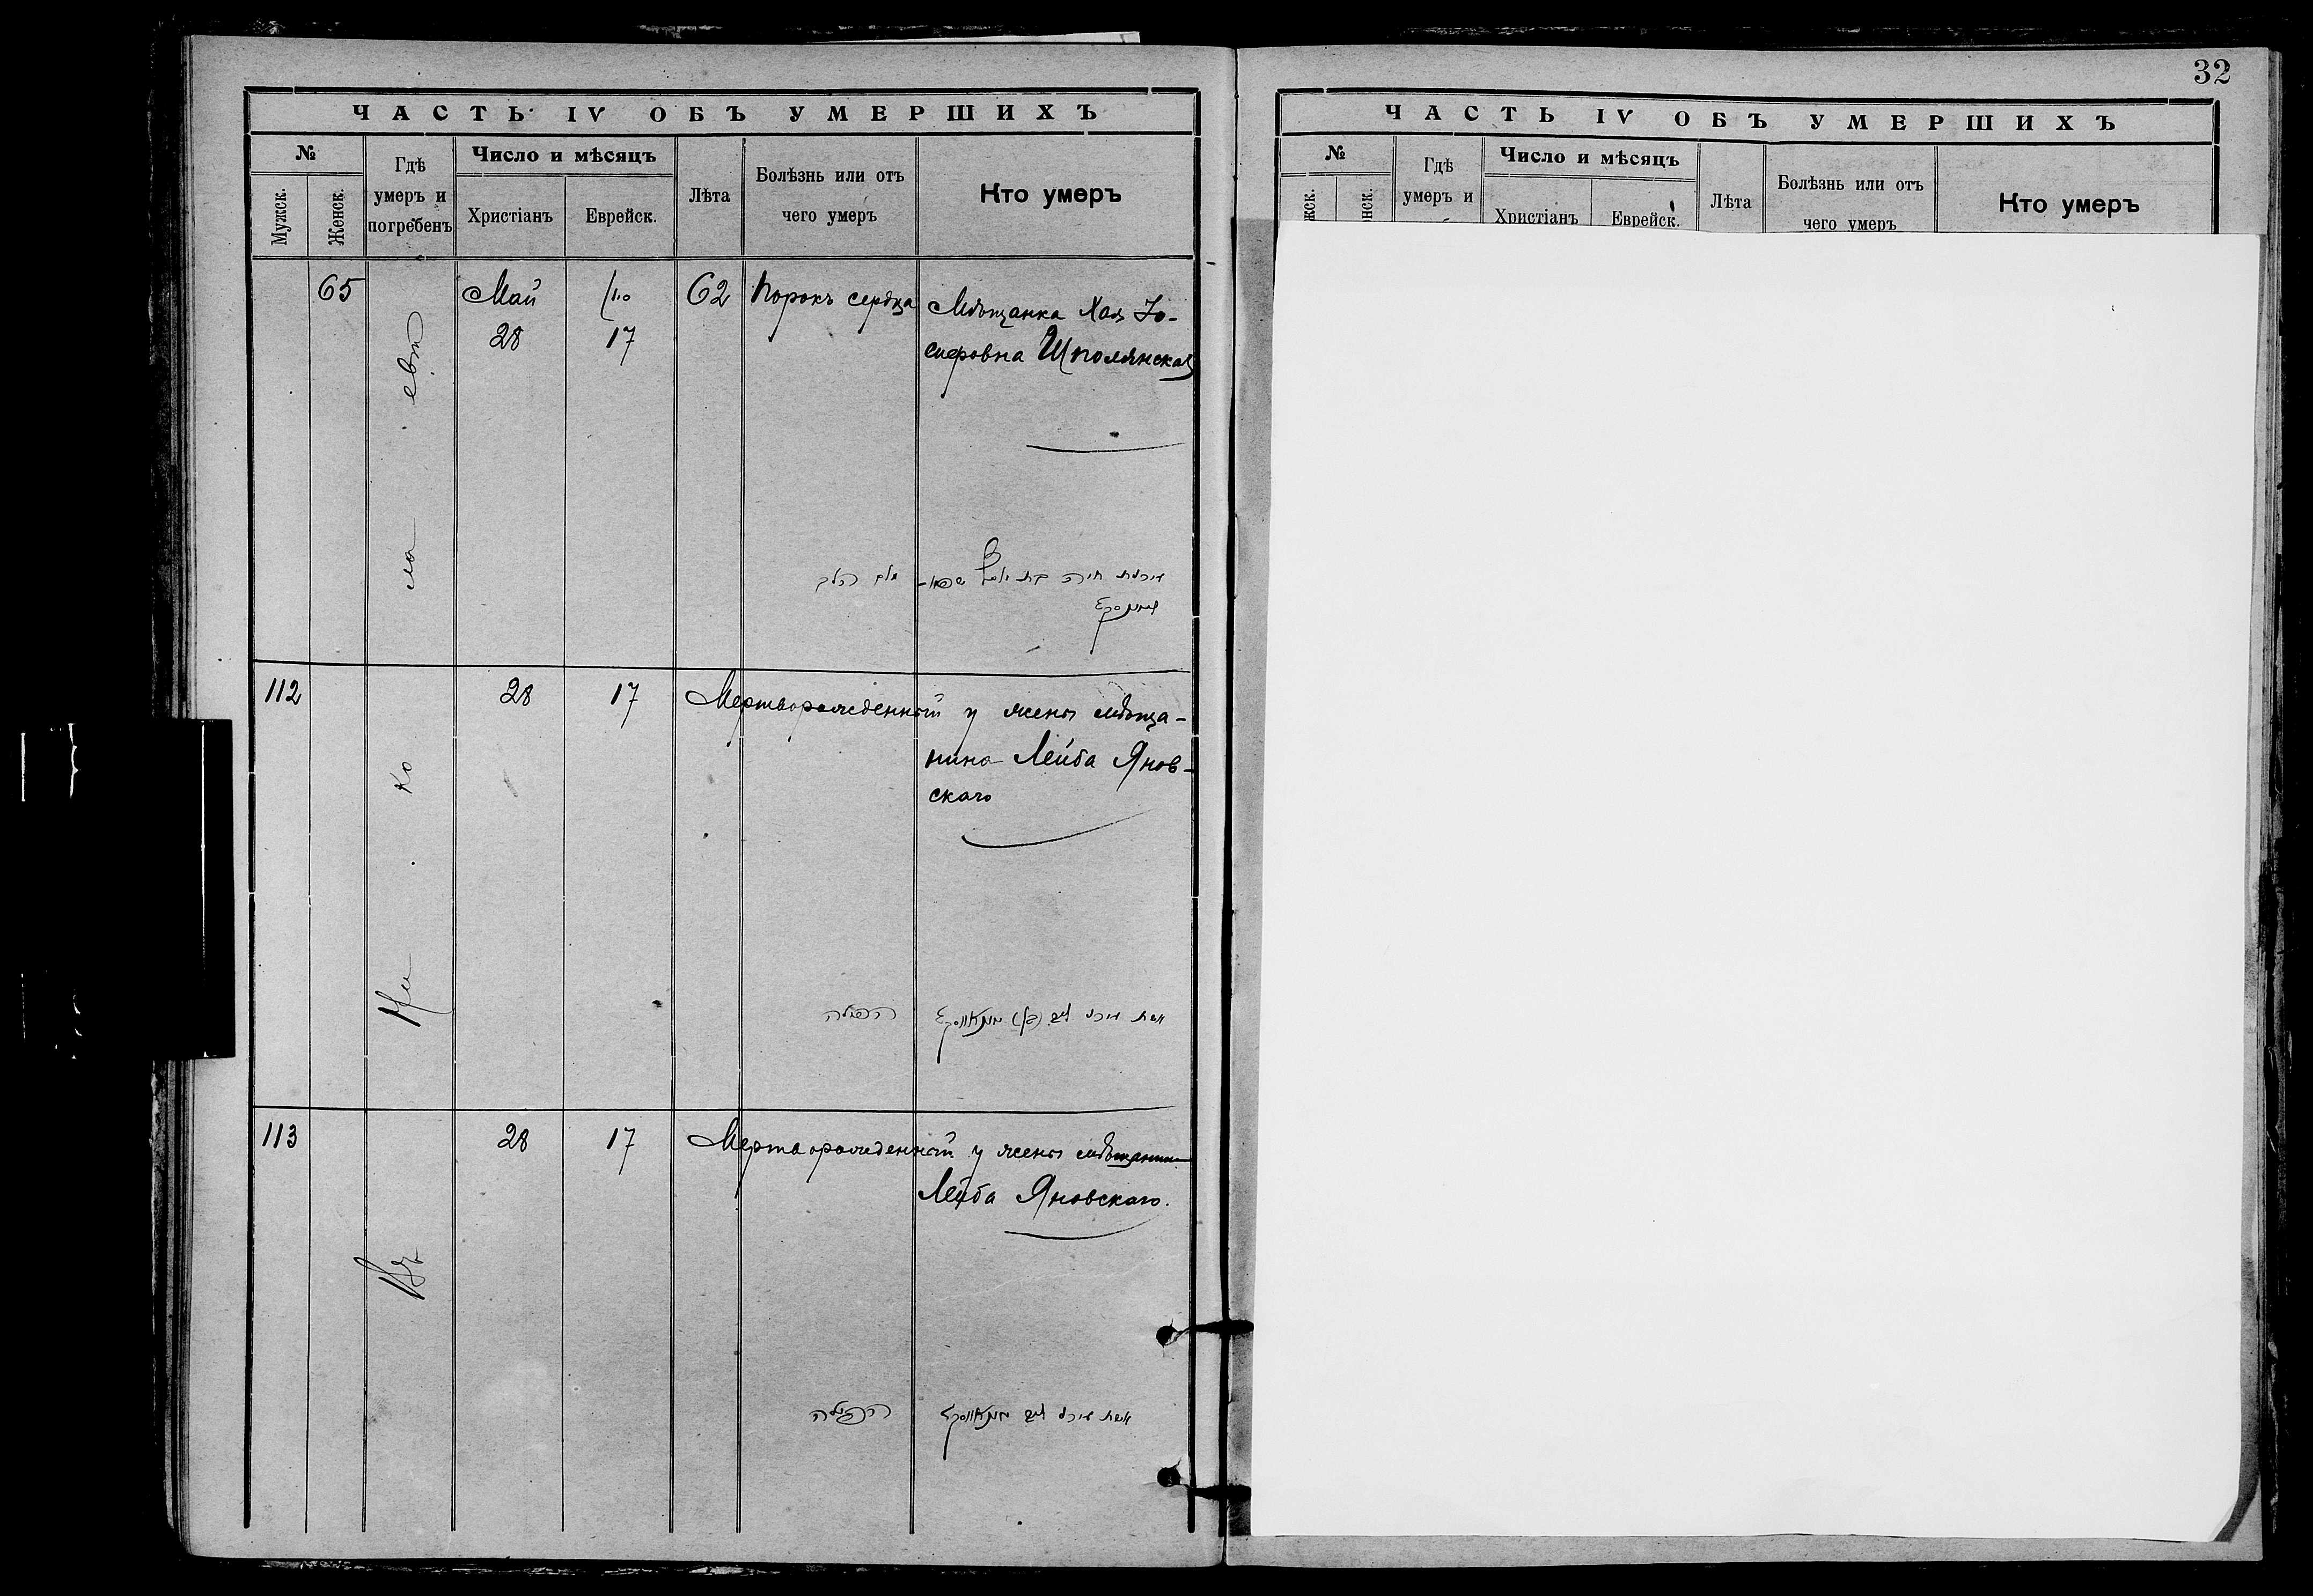 32
ЧАСТЬ IV ОБЪ УМЕРШИХЪ
№
Мужск.
Женск.
Гдѣ
умеръ и
погребенъ
Число и мѣсяцъ
Христіанъ
Еврейск.
Лѣта
Болѣзнь или отъ
чего умеръ
Кто умеръ
65
Май
28
17
62
Порокъ сердца
Мѣщанка Хая Іо-
сифовна Шполянская
112
28
17
Мертворожденный у жены мѣща-
нина Лейба Янов-
скаго
113
28
17
Мертворожденный у жены мѣщанина
Лейба Яновскаго.
Въ Ни ко ла евѣ
ЧАСТЬ IV ОБЪ УМЕРШИХЪ
№
жск.
нск.
Гдѣ
умеръ и
Число и мѣсяцъ
Христіанъ
Еврейск.
Лѣта
Болѣзнь или отъ
чего умеръ
Кто умеръ